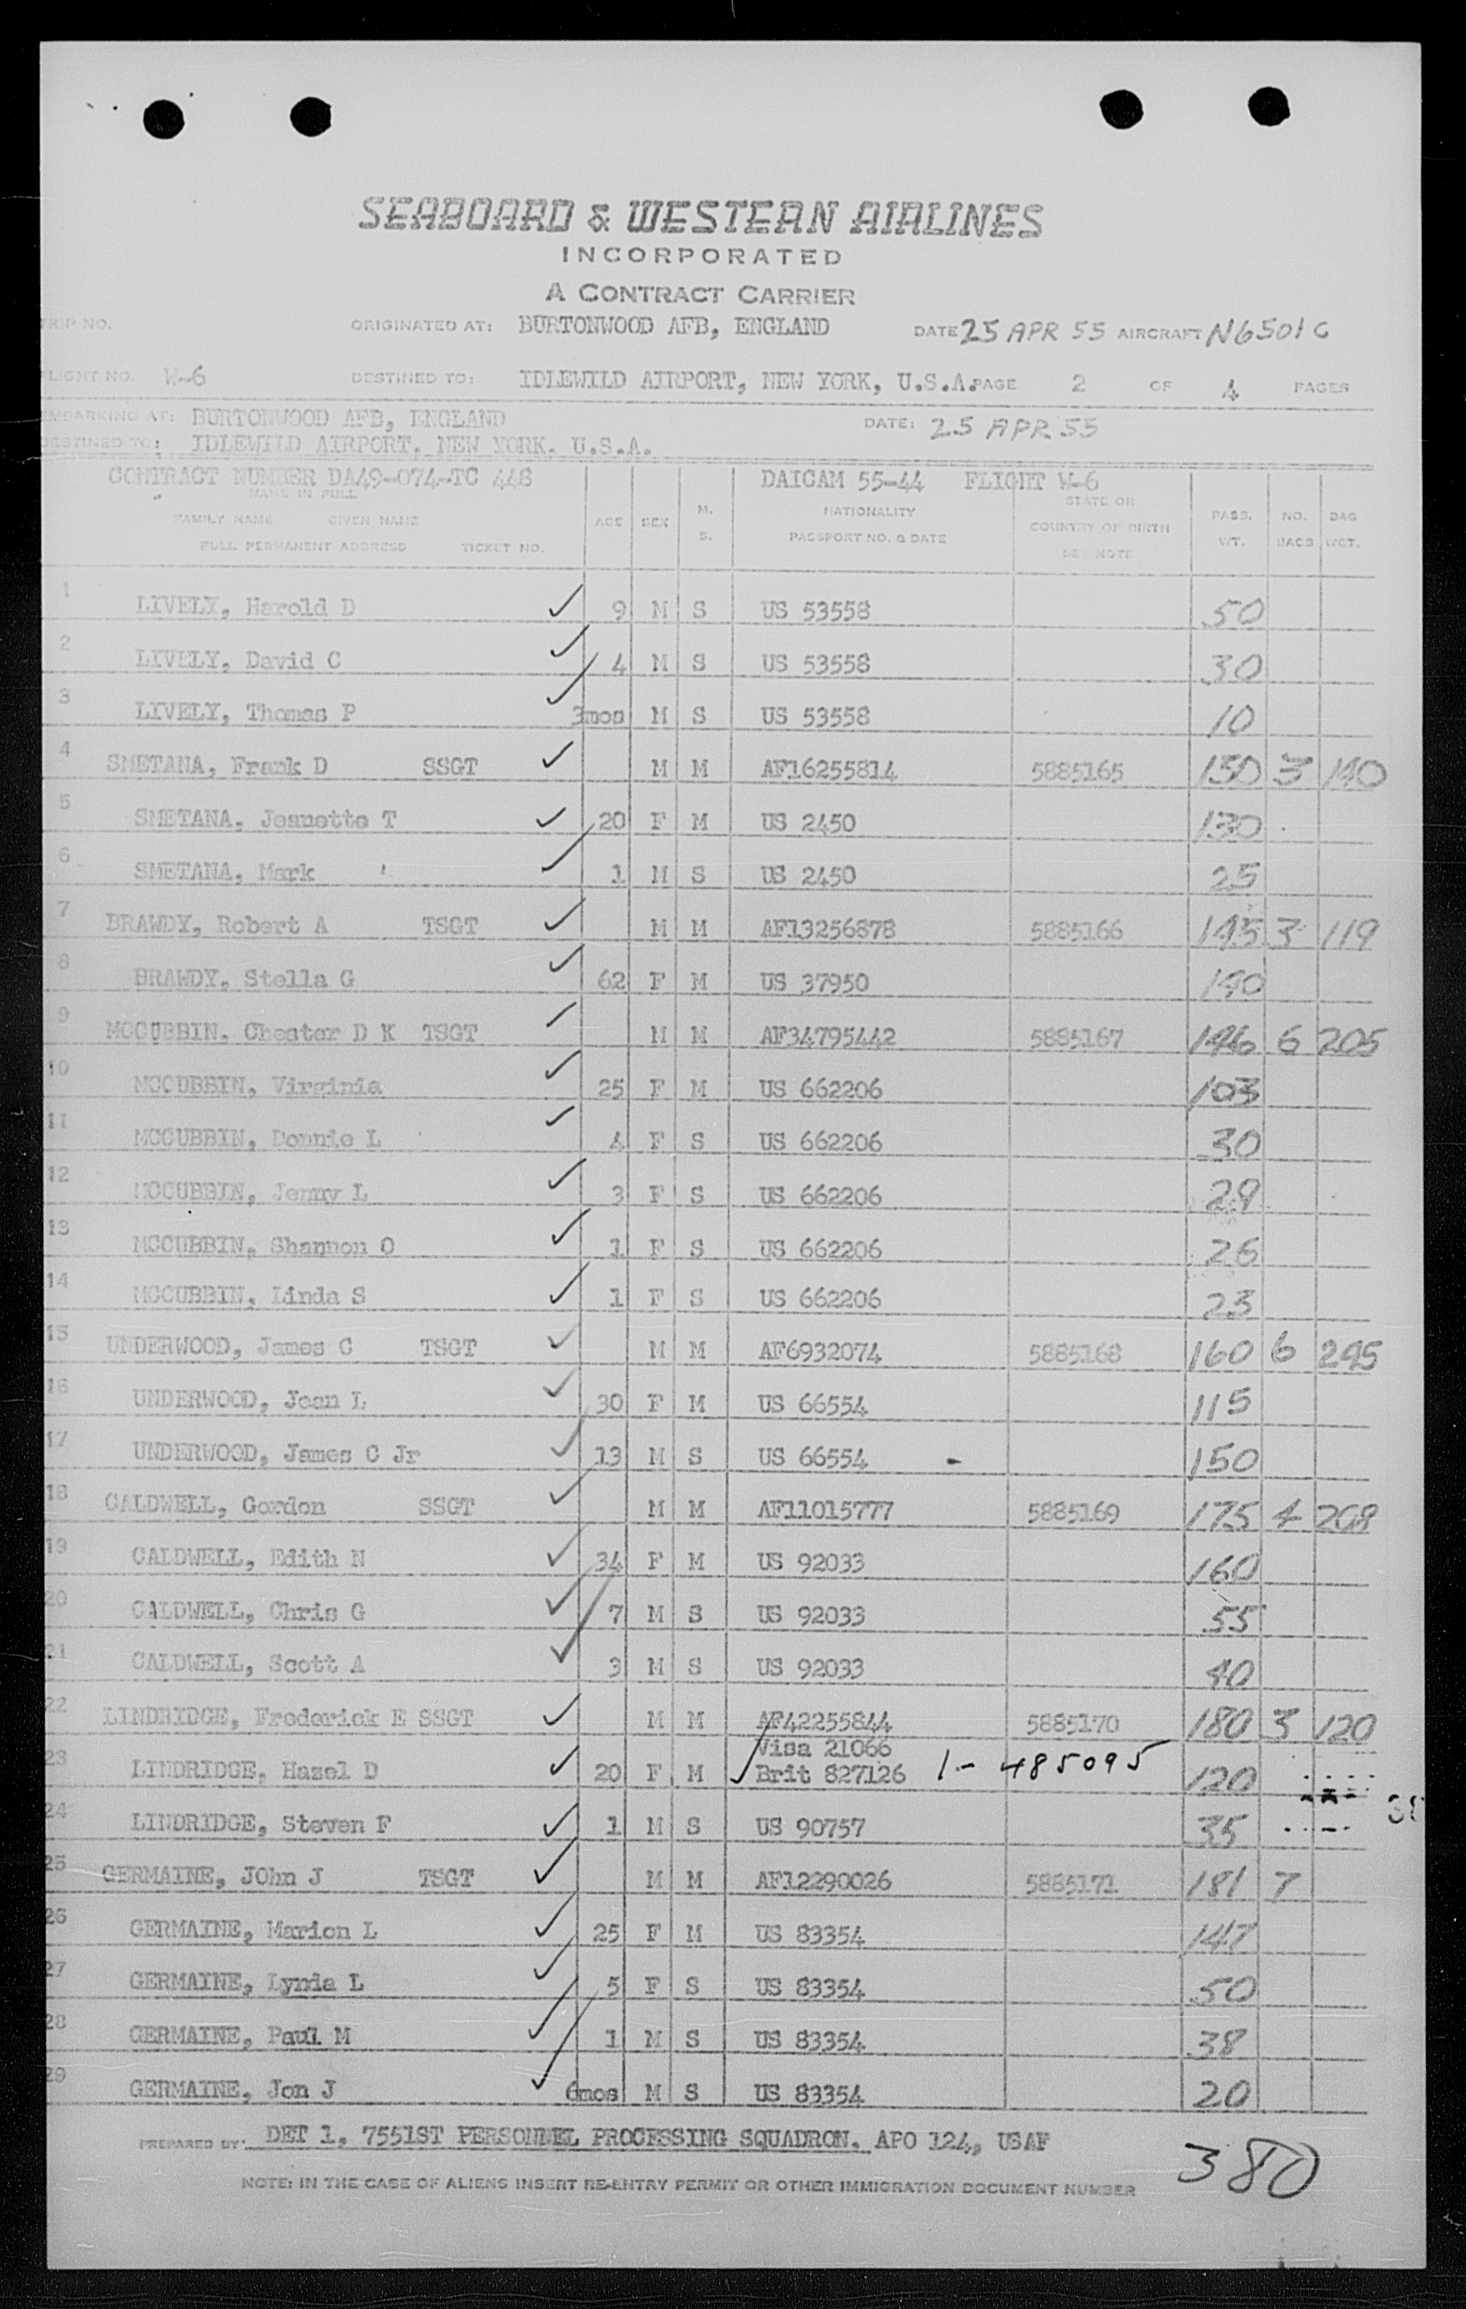 SEABOARD & WESTERN AIRLINES
INCORPORATED
A CONTRACT CARRIER
TRIP NO. ORIGINATED AT: BURTONWOOD AFB, ENGLAND DATE 25 APR 55 AIRCRAFT N6501C
FLIGHT NO. W-6 DESTINED TO: IDLEWILD AIRPORT, NEW YORK, U.S.A. PAGE 2 OF 4 PAGES
EMBARKING AT: BURTONWOOD AFB, ENGLAND DATE: 25 APR 55
DESTINED TO: IDLEWILD AIRPORT, NEW YORK, U.S.A.
CONTRACT NUMBER DA49-074-TC 448 DAICAM 55-44 FLIGHT W-6
NAME IN FULL STATE OR
FAMILY NAME GIVEN NAME AGE SEX M. S. NATIONALITY COUNTRY OF BIRTH PASS. NO. BAG
FULL PERMANENT ADDRESS TICKET NO. PASSPORT NO. & DATE SEE NOTE WT. BAGS WGT.
1 LIVELY, Harold D 9 M S US 53558 50
2 LIVELY, David C 4 M S US 53558 30
3 LIVELY, Thomas P 3mos M S US 53558 10
4 SMETANA, Frank D SSGT M M AF16255814 5885165 150 3 140
5 SMETANA, Jeanette T 20 F M US 2450 130
6 SMETANA, Mark 1 M S US 2450 25
7 BRAWDY, Robert A TSGT M M AF13256878 5885166 145 3 119
8 BRAWDY, Stella G 62 F M US 37950 140
9 MCCUBBIN, Chester D K TSGT M M AF34795442 5885167 146 6 205
10 MCCUBBIN, Virginia 25 F M US 662206 103
11 MCCUBBIN, Donnie L 4 F S US 662206 30
12 MCCUBBIN, Jenny L 3 F S US 662206 29
13 MCCUBBIN, Shannon O 1 F S US 662206 26
14 MCCUBBIN, Linda S 1 F S US 662206 23
15 UNDERWOOD, James C TSGT M M AF6932074 5885168 160 6 245
16 UNDERWOOD, Jean L 30 F M US 66554 115
17 UNDERWOOD, James C Jr 13 M S US 66554 - 150
18 CALDWELL, Gordon SSGT M M AF11015777 5885169 175 4 209
19 CALDWELL, Edith N 34 F M US 92033 160
20 CALDWELL, Chris G 7 M S US 92033 55
21 CALDWELL, Scott A 3 M S US 92033 40
22 LINDRIDGE, Frederick E SSGT M M AF42255844 5885170 180 3 120
Visa 21066
23 LINDRIDGE, Hazel D 20 F M Brit 827126 1-485095 120
24 LINDRIDGE, Steven F 1 M S US 90757 35
25 GERMAINE, JOhn J TSGT M M AF12290026 5885171 181 7
26 GERMAINE, Marion L 25 F M US 83354 147
27 GERMAINE, Lynia L 5 F S US 83354 50
28 GERMAINE, Paul M 1 M S US 83354 38
29 GERMAINE, Jon J 6mos M S US 83354 20
PREPARED BY: DET 1, 7551ST PERSONNEL PROCESSING SQUADRON. APO 124, USAF
380
NOTE: IN THE CASE OF ALIENS INSERT RE-ENTRY PERMIT OR OTHER IMMIGRATION DOCUMENT NUMBER